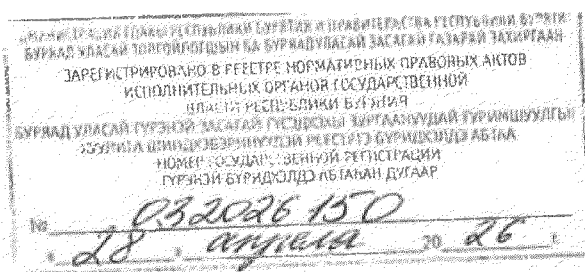 АДМИНИСТРАЦИЯ ГЛАВЫ РЕСПУБЛИКИ БУРЯТИЯ И ПРАВИТЕЛЬСТВА РЕСПУБЛИКИ БУРЯТИЯ
БУРЯАД УЛАСАЙ ТОЛГОЙЛОГШЫН БА БУРЯАД УЛАСАЙ ЗАСАГАЙ ГАЗАРАЙ ЗАХИРГААН
ЗАРЕГИСТРИРОВАНО В РЕЕСТРЕ НОРМАТИВНЫХ ПРАВОВЫХ АКТОВ
ИСПОЛНИТЕЛЬНЫХ ОРГАНОВ ГОСУДАРСТВЕННОЙ
ВЛАСТИ РЕСПУБЛИКИ БУРЯТИЯ
БУРЯАД УЛАСАЙ ГҮРЭНЭЙ ЗАСАГАЙ
РЕЕСТРТЭ БҮРИДХЭГДЭ АБТАА
НОМЕР ГОСУДАРСТВЕННОЙ РЕГИСТРАЦИИ
ГҮРЭНЭЙ БҮРИДХЭЛДЭ АБТАҺАН ДУГААР
№ 032026150
" 28 " апреля 20 26 г.